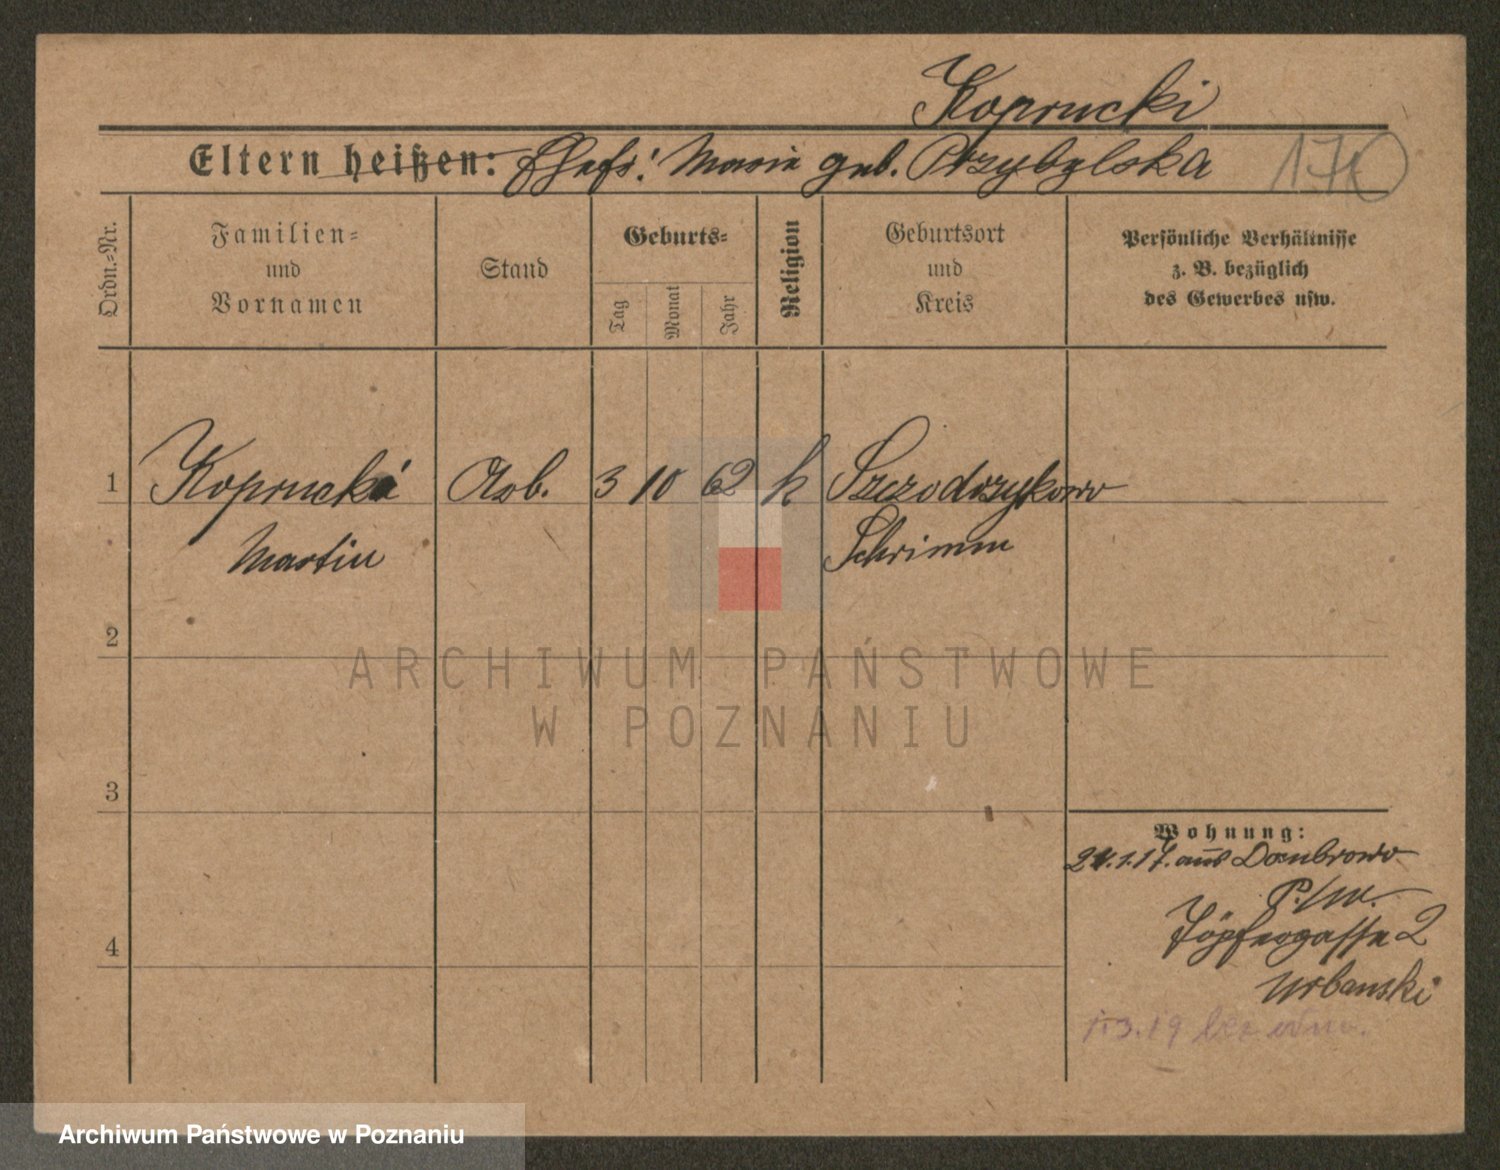 Koprucki
Eltern heißen: Ehefr: Marie geb. Przybylska 176
Ordn.-Nr.
Familien-
und
Vornamen
Stand
Geburts-
Tag
Monat
Jahr
Religion
Geburtsort
und
Kreis
Persönliche Verhältnisse
z. B. bezüglich
des Gewerbes usw.
1 Koprucki Arb. 3 10 62 k Szczodrzykowo
Martin Schrimm
2
3
4
Wohnung:
24.1.17. aus Dombrowo
P./W.
Töpfergasse 2
Urbanski
1.3.19 bez
ARCHIWUM PAŃSTWOWE
W POZNANIU
Archiwum Państwowe w Poznaniu